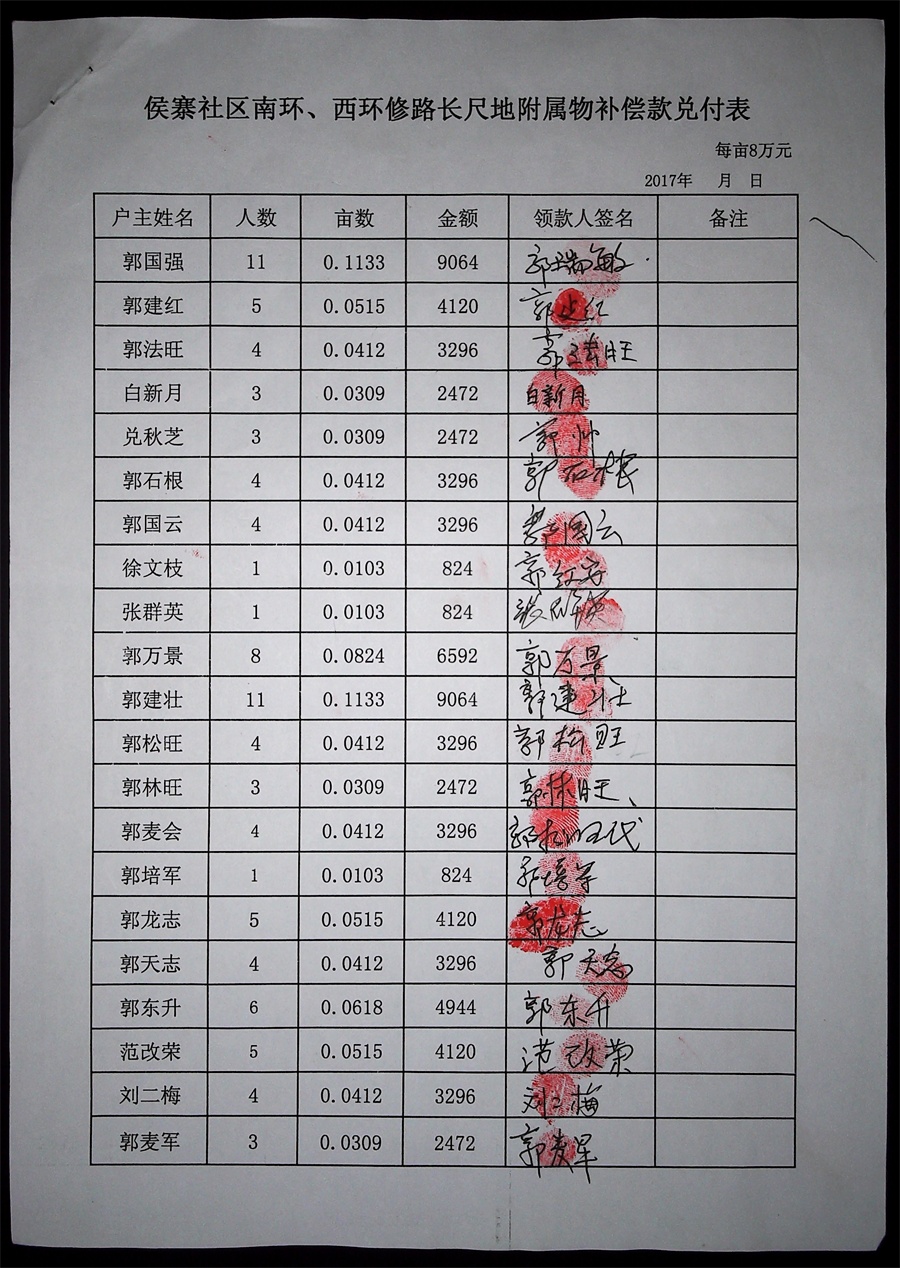 侯寨社区南环、西环修路长尺地附属物补偿款兑付表
每亩8万元
2017年 月 日
户主姓名 人数 亩数 金额 领款人签名 备注
郭国强 11 0.1133 9064 郭瑞敏
郭建红 5 0.0515 4120 郭建红
郭法旺 4 0.0412 3296 郭法旺
白新月 3 0.0309 2472 白新月
兑秋芝 3 0.0309 2472 郭
郭石根 4 0.0412 3296 郭石根
郭国云 4 0.0412 3296 郭国云
徐文枝 1 0.0103 824 郭红安
张群英 1 0.0103 824 张群英
郭万景 8 0.0824 6592 郭万景
郭建壮 11 0.1133 9064 郭建壮
郭松旺 4 0.0412 3296 郭松旺
郭林旺 3 0.0309 2472 郭林旺
郭麦会 4 0.0412 3296 郭
郭培军 1 0.0103 824 郭培军
郭龙志 5 0.0515 4120 郭龙志
郭天志 4 0.0412 3296 郭天志
郭东升 6 0.0618 4944 郭东升
范改荣 5 0.0515 4120 范改荣
刘二梅 4 0.0412 3296 刘二梅
郭麦军 3 0.0309 2472 郭麦军